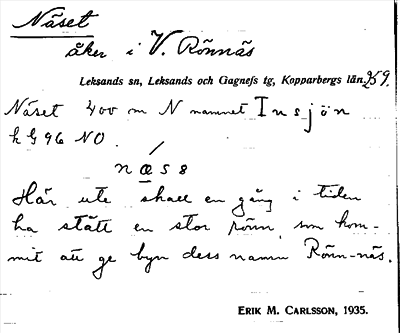 Näset
åker i V. Rönnäs
Leksands sn, Leksands och Gagnefs tg, Kopparbergs län. 959.
Näset 400 m N namnet Insjön
h G 96 NO.
næss
Här ute skall en gång i tiden
ha stått en stor rönn, som kom-
mit att ge byn dess namn Rönn-näs.
ERIK M. CARLSSON, 1935.